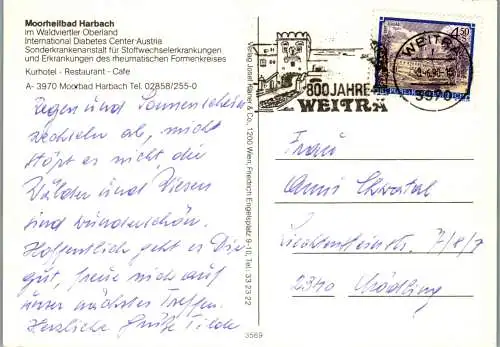 Moorheilbad Harbach
im Waldviertler Oberland
International Diabetes Center Austria
Sonderkrankenanstalt für Stoffwechselerkrankungen
und Erkrankungen des rheumatischen Formenkreises
Kurhotel - Restaurant - Cafe
A- 3970 Moorbad Harbach Tel. 02858/255-0
Regen und Sonnenschein
wechseln ab, mich
stört es nicht, die
Wälder und Wiesen
sind wunderschön.
Hoffentlich geht es Dir
gut, freue mich auf
unser nächstes Treffen.
Herzliche Grüße Tilde
Verlag Josef Kaiser & Co., 1200 Wien, Friedrich Engelsplatz 9-10, Tel. 33 23 22
3569
800 JAHRE
WEITRA
WEITRA
3970
4.50
Frau
Anni
Liechtensteinstr. 7/8/7
2340 Mödling